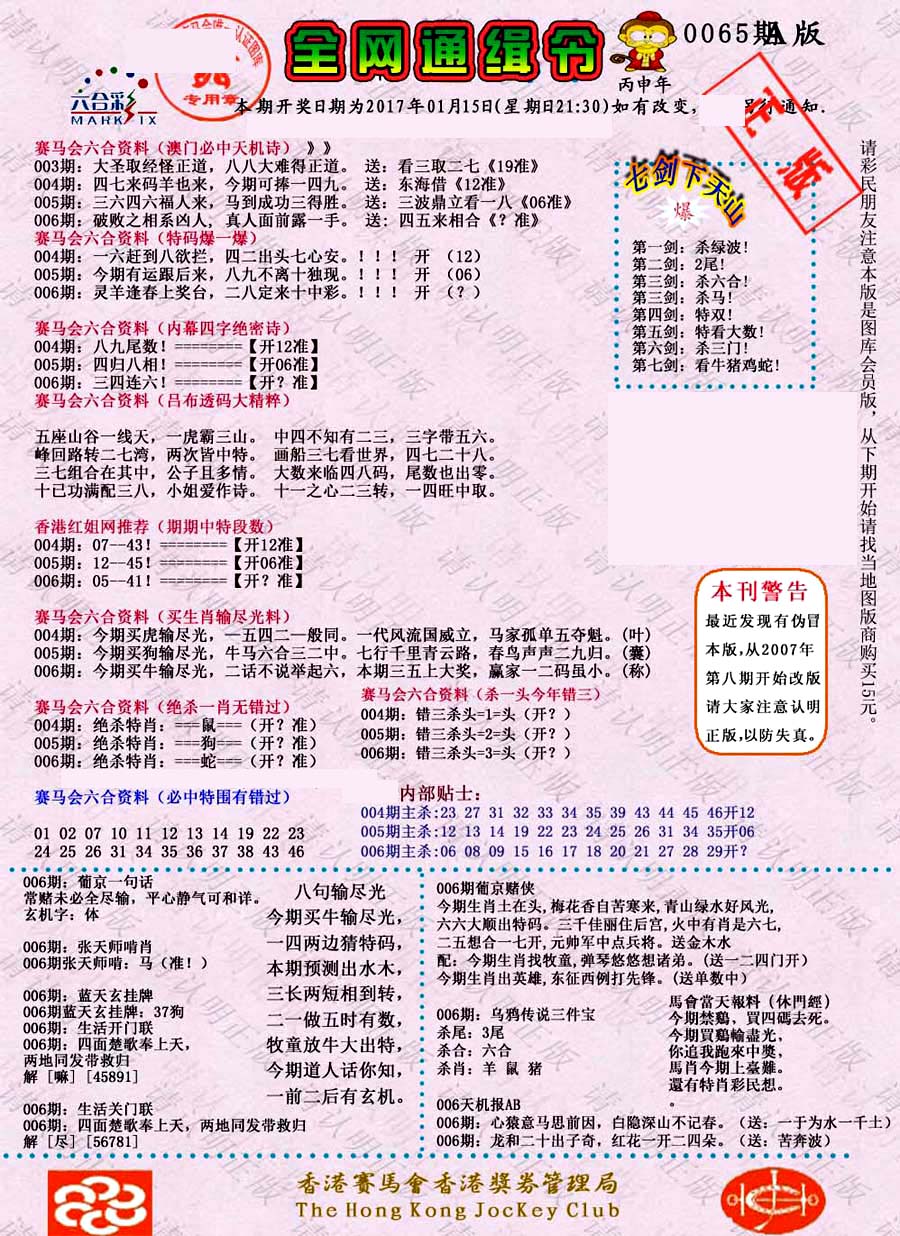 全网通缉令
0065期A版
丙申年
六合彩
MARK SIX
专用章
本期开奖日期为2017年01月15日(星期日21:30)如有改变,
行通知.
正版
赛马会六合资料（澳门必中天机诗）》》
003期：大圣取经怪正道，八八大难得正道。 送：看三取二七《19准》
004期：四七来码羊也来，今期可捧一四九。 送：东海借《12准》
005期：三六四六福人来，马到成功三得胜。 送：三波鼎立看一八《06准》
006期：破败之相系凶人，真人面前露一手。 送：四五来相合《？准》
赛马会六合资料（特码爆一爆）
004期：一六赶到八欲拦，四二出头七心安。！！！ 开 （12）
005期：今期有运跟后来，八九不离十独现。！！！ 开 （06）
006期：灵羊逢春上奖台，二八定来十中彩。！！！ 开 （？）
赛马会六合资料（内幕四字绝密诗）
004期：八九尾数！========【开12准】
005期：四归八相！========【开06准】
006期：三四连六！========【开？准】
赛马会六合资料（吕布透码大精粹）
五座山谷一线天，一虎霸三山。 中四不知有二三，三字带五六。
峰回路转二七湾，两次皆中特。 画船三七看世界，四七二十八。
三七组合在其中，公子且多情。 大数来临四八码，尾数也出零。
十已功满配三八，小姐爱作诗。 十一之心二三转，一四旺中取。
香港红姐网推荐（期期中特段数）
004期：07--43！========【开12准】
005期：12--45！========【开06准】
006期：05--41！========【开？准】
赛马会六合资料（买生肖输尽光料）
004期：今期买虎输尽光，一五四二一般同。一代风流国威立，马家孤单五夺魁。(叶)
005期：今期买狗输尽光，牛马六合三二中。七行千里青云路，春鸟声声二九归。(囊)
006期：今期买牛输尽光，二话不说举起六，本期三五上大奖，赢家一二码虽小。(称)
赛马会六合资料（绝杀一肖无错过）
004期：绝杀特肖：===鼠===（开？准）
005期：绝杀特肖：===狗===（开？准）
006期：绝杀特肖：===蛇===（开？准）
赛马会六合资料（杀一头今年错三）
004期：错三杀头=1=头（开？）
005期：错三杀头=2=头（开？）
006期：错三杀头=3=头（开？）
赛马会六合资料（必中特围有错过）
01 02 07 10 11 12 13 14 19 22 23
24 25 26 31 34 35 36 37 38 43 46
内部贴士：
004期主杀:23 27 31 32 33 34 35 39 43 44 45 46开12
005期主杀:12 13 14 19 22 23 24 25 26 31 34 35开06
006期主杀:06 08 09 15 16 17 18 20 21 27 28 29开?
七剑下天山
爆
第一剑：杀绿波！
第二剑：2尾！
第三剑：杀六合！
第三剑：杀马！
第四剑：特双！
第五剑：特看大数！
第六剑：杀三门！
第七剑：看牛猪鸡蛇！
请彩民朋友注意本版是图库会员版，从下期开始请找当地图版商购买15元。
本刊警告
最近发现有伪冒
本版,从2007年
第八期开始改版
请大家注意认明
正版,以防失真。
006期：葡京一句话
常赌未必全尽输，平心静气可和详。
玄机字：休
006期：张天师啃肖
006期张天师啃：马（准！）
006期：蓝天玄挂牌
006期蓝天玄挂牌：37狗
006期：生活开门联
006期：四面楚歌奉上天，
两地同发带救归
解［嘛］[45891]
006期：生活关门联
006期：四面楚歌奉上天，两地同发带救归
解［尽］[56781]
八句输尽光
今期买牛输尽光，
一四两边猜特码，
本期预测出水木，
三长两短相到转，
二一做五时有数，
牧童放牛大出特，
今期道人话你知，
一前二后有玄机。
006期葡京赌侠
今期生肖土在头,梅花香自苦寒来,青山绿水好风光,
六六大顺出特码。三千佳丽住后宫,火中有肖是六七,
二五想合一七开,元帅军中点兵将。送金木水
配：今期生肖找牧童,弹琴悠悠想诸弟。(送一二四门开）
今期生肖出英雄,东征西例打先锋。(送单数中）
006期：乌鸦传说三件宝
杀尾：3尾
杀合：六合
杀肖：羊 鼠 猪
馬會當天報料（休門經）
今期禁鷄、買四碼去死。
今期買鷄輸盡光，
你追我跑來中獎，
馬肖今期上臺難。
還有特肖彩民想。
。
006天机报AB
006期：心猿意马思前因，白隐深山不记春。（送：一于为水一千土）
006期：龙和二十出子奇，红花一开二四朵。（送：苦奔波）
香港賽馬會香港獎券管理局
The Hong Kong JocKey Club